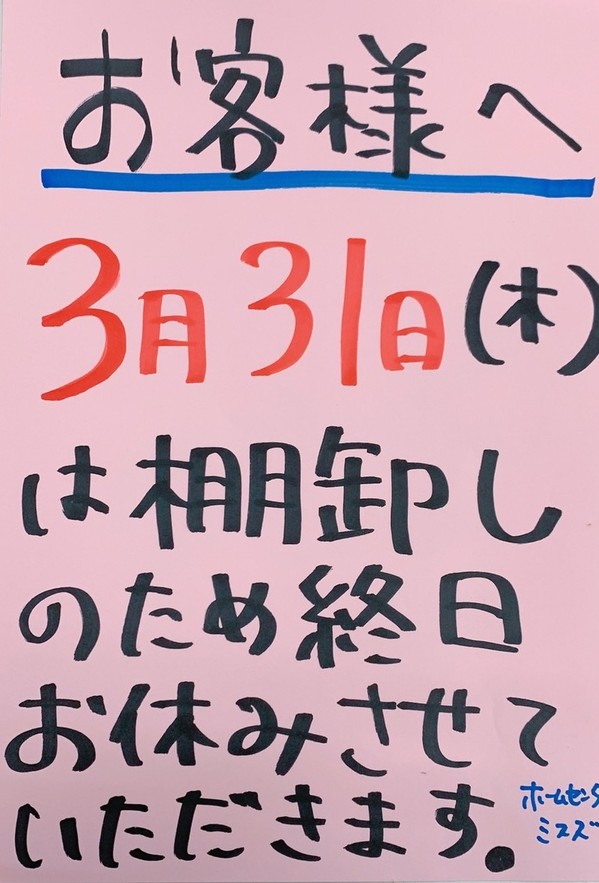 お客様へ
3月31日(木)
は棚卸し
のため終日
お休みさせて
いただきます。
ホームセンタ
ミスズ